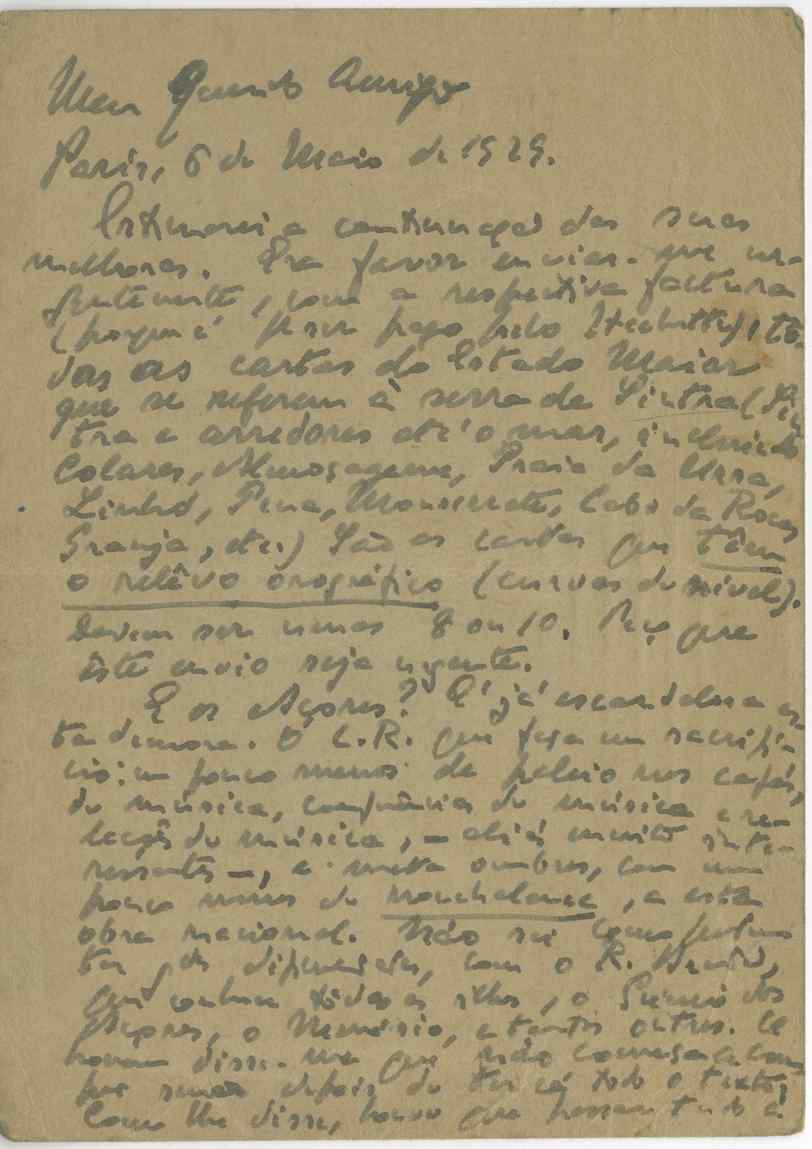 Meu Querido Amigo
Paris, 6 de Maio de 1929.
Estimarei a continuação das suas
melhoras. Era favor enviar-me ur-
gentemente, com a respectiva factura
(porque é p. ser pago pelo Hachette), to-
das as cartas do Estado Maior
que se referem à serra de Sintra (Sin-
tra e arredores até o mar, incluindo
Colares, Almoçageme, Praia da Ursa,
Linhó, Pena, Monserrate, Cabo da Roca,
Granja, etc.) São as cartas que têm
o relêvo orográfico (curvas de nivel).
Devem ser umas 8 ou 10. Peço que
êste envio seja urgente.
E os Açores? É já escandalosa es-
ta demora. O L.R. que faça um sacrifí-
cio: um pouco menos de paleio nos cafés,
de música, conferências de música e re-
lações de música, – aliás muito inte-
ressantes –, e meta ombros, com um
pouco menos de nonchalance, a esta
obra nacional. Não sei como pode
ter dificuldades, com o R.
que conhece tôdas as ilhas, o Gremio dos
Açores, o Nemésio, e tantos outros. Ce
disse-me que não começa a com-
por senão depois de ter cá todo o texto;
Como lhe disse, houve que passar tudo à